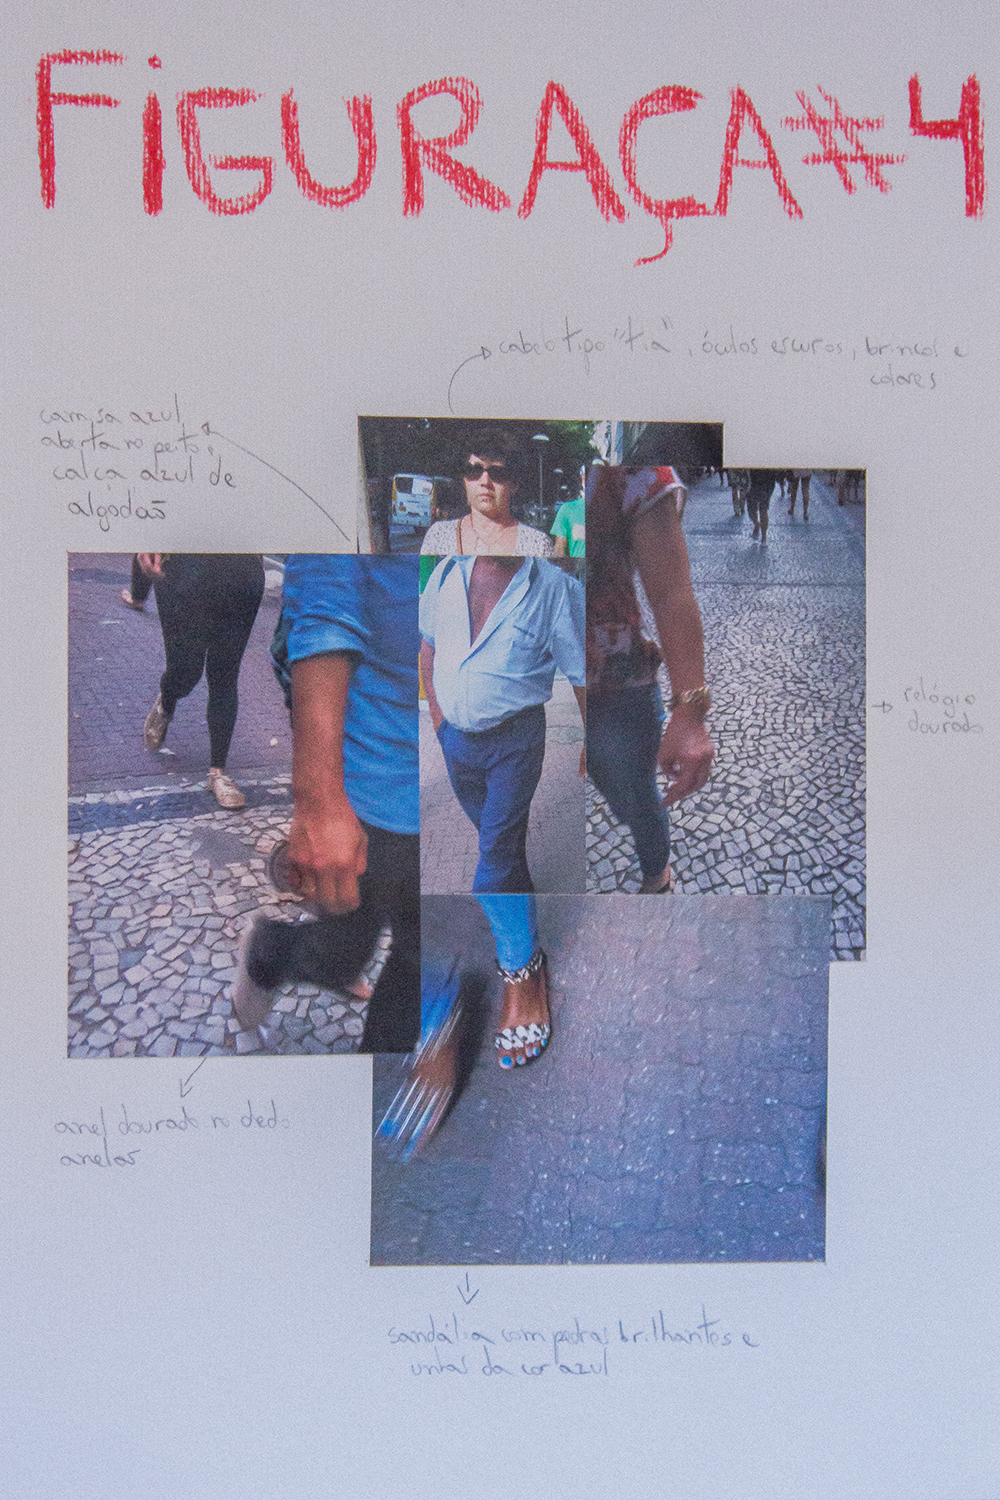 FIGURAÇA#4
cabelo tipo "tia", óculos escuros, brincos e
colares
camisa azul
aberta no peito,
calça azul de
algodão
relógio
dourado
anel dourado no dedo
anelar
sandália com pedras brilhantes e
unhas da cor azul